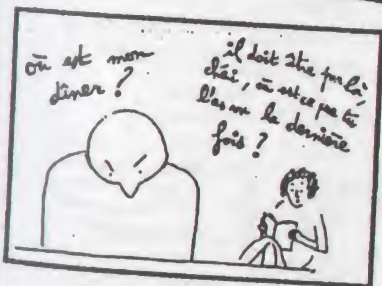 où est mon
dîner ?
il doit être par là,
chéi, où est ce que tu
l'as vu la dernière
fois ?